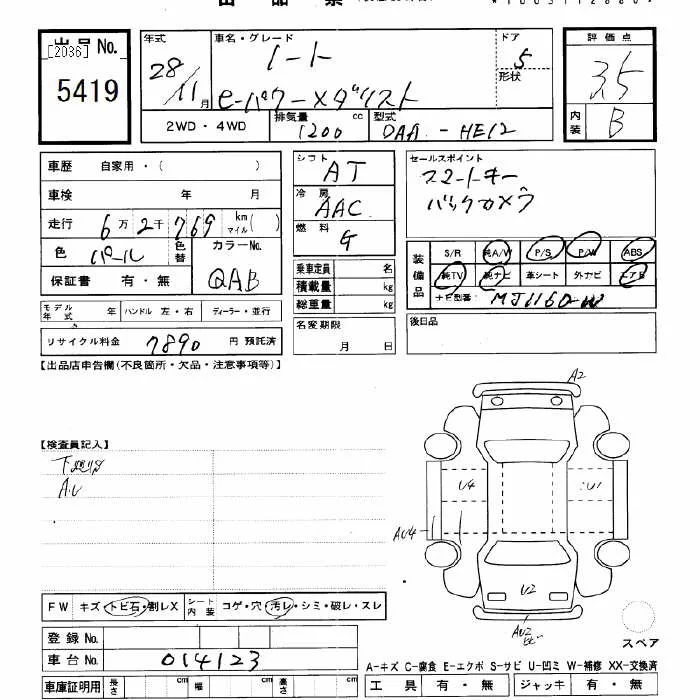 出品票
[2036]
出品No.
5419
年式
28/11月
車名・グレード
ノート
e-パワーメダリスト
ドア
5
形状
評価点
3.5
内装
B
2WD・4WD
排気量
1200cc
型式
DAA-HE12
車歴 自家用・(　　)
車検 年 月
走行 6万2千769 km マイル( )
色 パール 色替 カラーNo. QAB
保証書 有・無
シフト AT
冷房 AAC
燃料 G
乗車定員 名
積載量 kg
総重量 kg
セールスポイント
スマートキー
バックカメラ
装備品
S/R 純A/W P/S P/W ABS
純TV 純ナビ 革シート 外ナビ エアB
ナビ型番: MJ116D-W
モデル年式 年 ハンドル 左・右 ディーラー・並行
名変期限
月 日
後日品
リサイクル料金 7890 円 預託済
【出品店申告欄(不良箇所・欠品・注意事項等)】
A2
【検査員記入】
下廻りS
AU
U4
U1
AU4
U2
AU2
FW キズ・トビ石・割レX シート内装 コゲ・穴・汚レ・シミ・破レ・スレ
スペア
登録No.
車台No. 014123
A-キズ C-腐食 E-エクボ S-サビ U-凹ミ W-補修 XX-交換済
車庫証明用 長さ cm 幅 cm 高さ cm
工具 有・無 ジャッキ 有・無